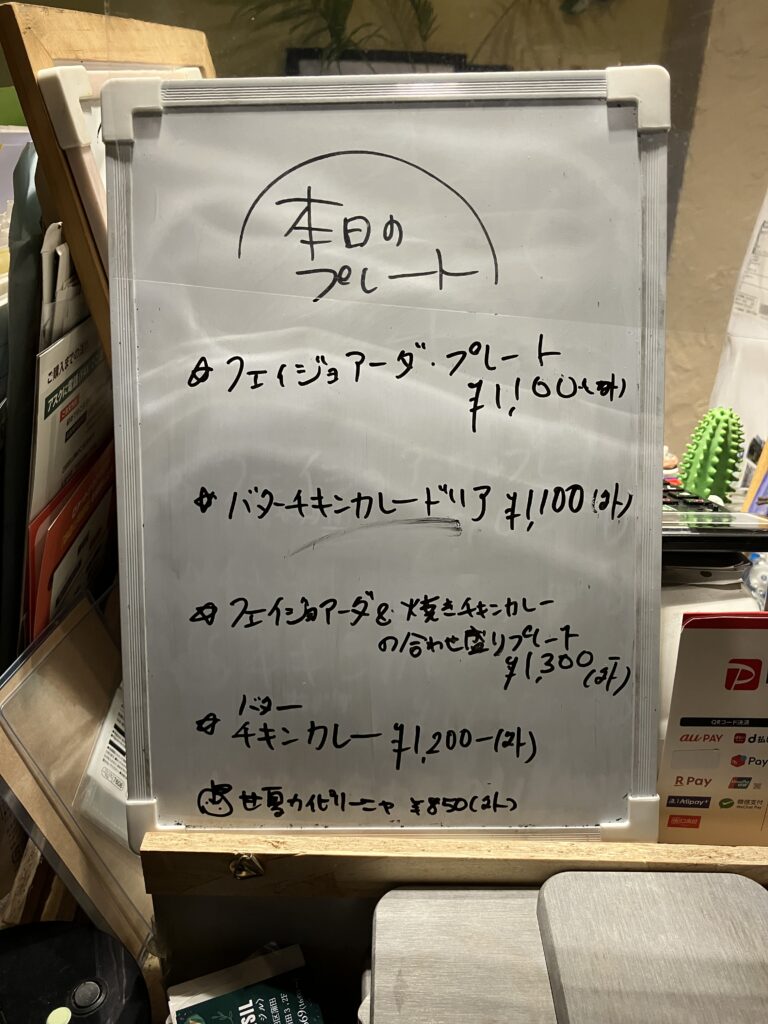 本日の
プレート
☆ フェイジョアーダ・プレート
¥1,100-(外)
☆ バターチキンカレードリア ¥1,100(外)
☆ フェイジョアーダ& 焼きチキンカレー
の合わせ盛りプレート
¥1,300(外)
☆ バター
チキンカレー ¥1,200-(外)
甘夏カイピリーニャ ¥850(外)
ご購入までの
QRコード決済
au PAY
d払
Pay
R Pay
Alipay+
微信支付
WeChat Pay
SIL